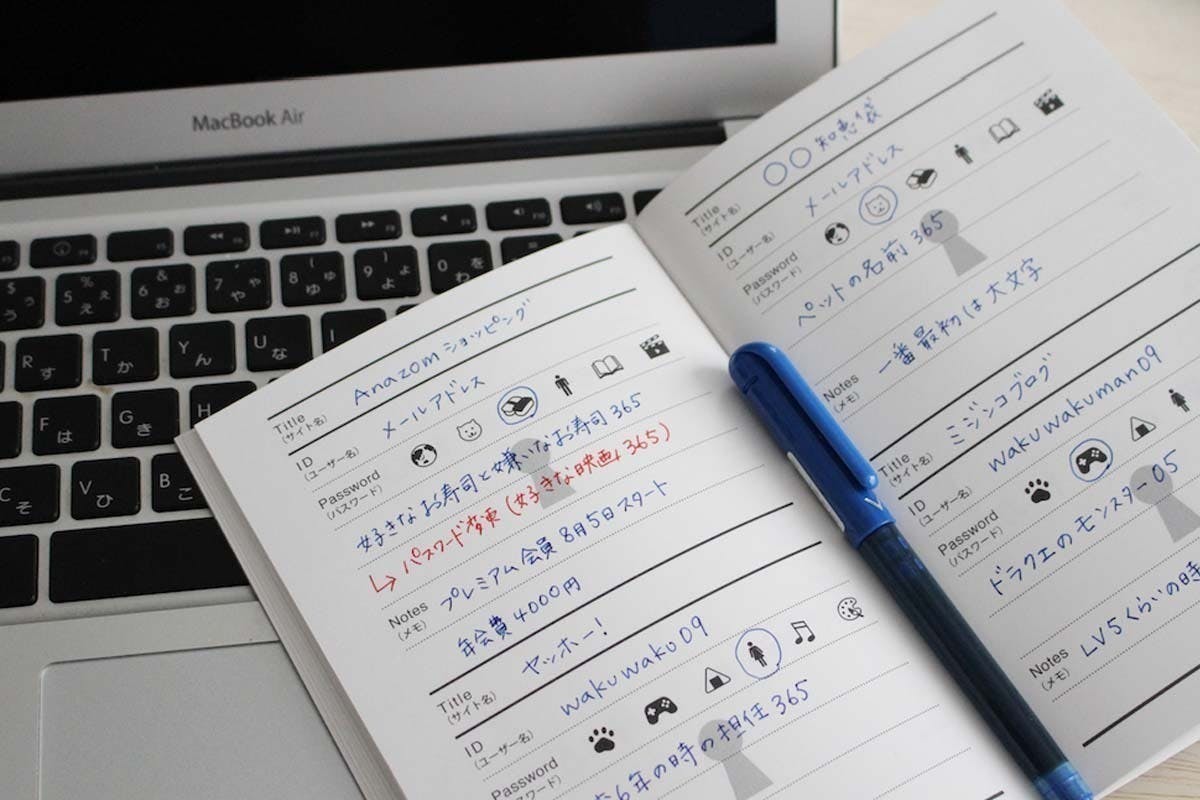 MacBook Air
F5
F6
F7
F8
F9
F10
F11
$ う
% 5 え ぇ
& 6 お ぉ
' 7 や ゃ
( 8 ゆ ゅ
) 9 よ ょ
0 わ を
R す
T か
Y ん
U な
I
F は
G き
H
C そ
V ひ
B こ
Title (サイト名) Anazomショッピング
ID (ユーザー名) メールアドレス
Password (パスワード)
好きなお寿司と嫌いなお寿司365
↳パスワード変更(好きな映画、365)
Notes (メモ) プレミアム会員8月5日スタート
年会費4000円
Title (サイト名) ヤッホー!
ID (ユーザー名) wakuwaku09
Password (パスワード)
6年の時の担任365
Title (サイト名) 〇〇知恵袋
ID (ユーザー名) メールアドレス
Password (パスワード)
ペットの名前365
Notes (メモ) 一番最初は大文字
Title (サイト名) ミジンコブログ
ID (ユーザー名) wakuwakuman09
Password (パスワード)
ドラクエのモンスター05
Notes (メモ) LV5くらいの時
V